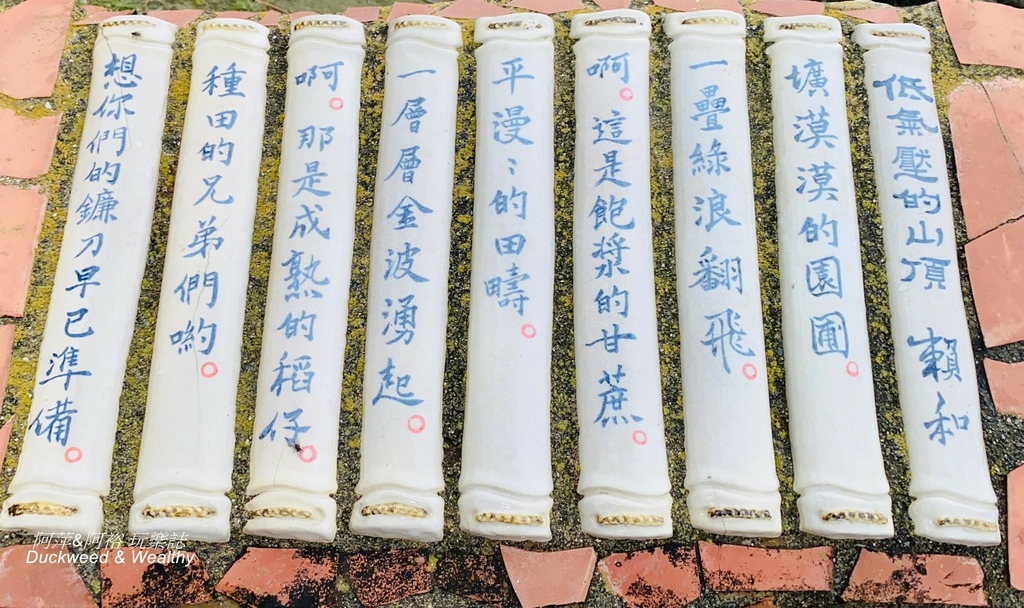 低氣壓的山頂 賴和
壙漠漠的園圃。
一疊綠浪翻飛。
啊。這是飽漿的甘蔗。
平漫ミ的田疇。
一層層金波湧起。
啊。那是成熟的稻仔。
種田的兄弟們喲。
想你們的鐮刀早已準備。
阿萍&阿裕 玩樂誌
Duckweed & Wealthy